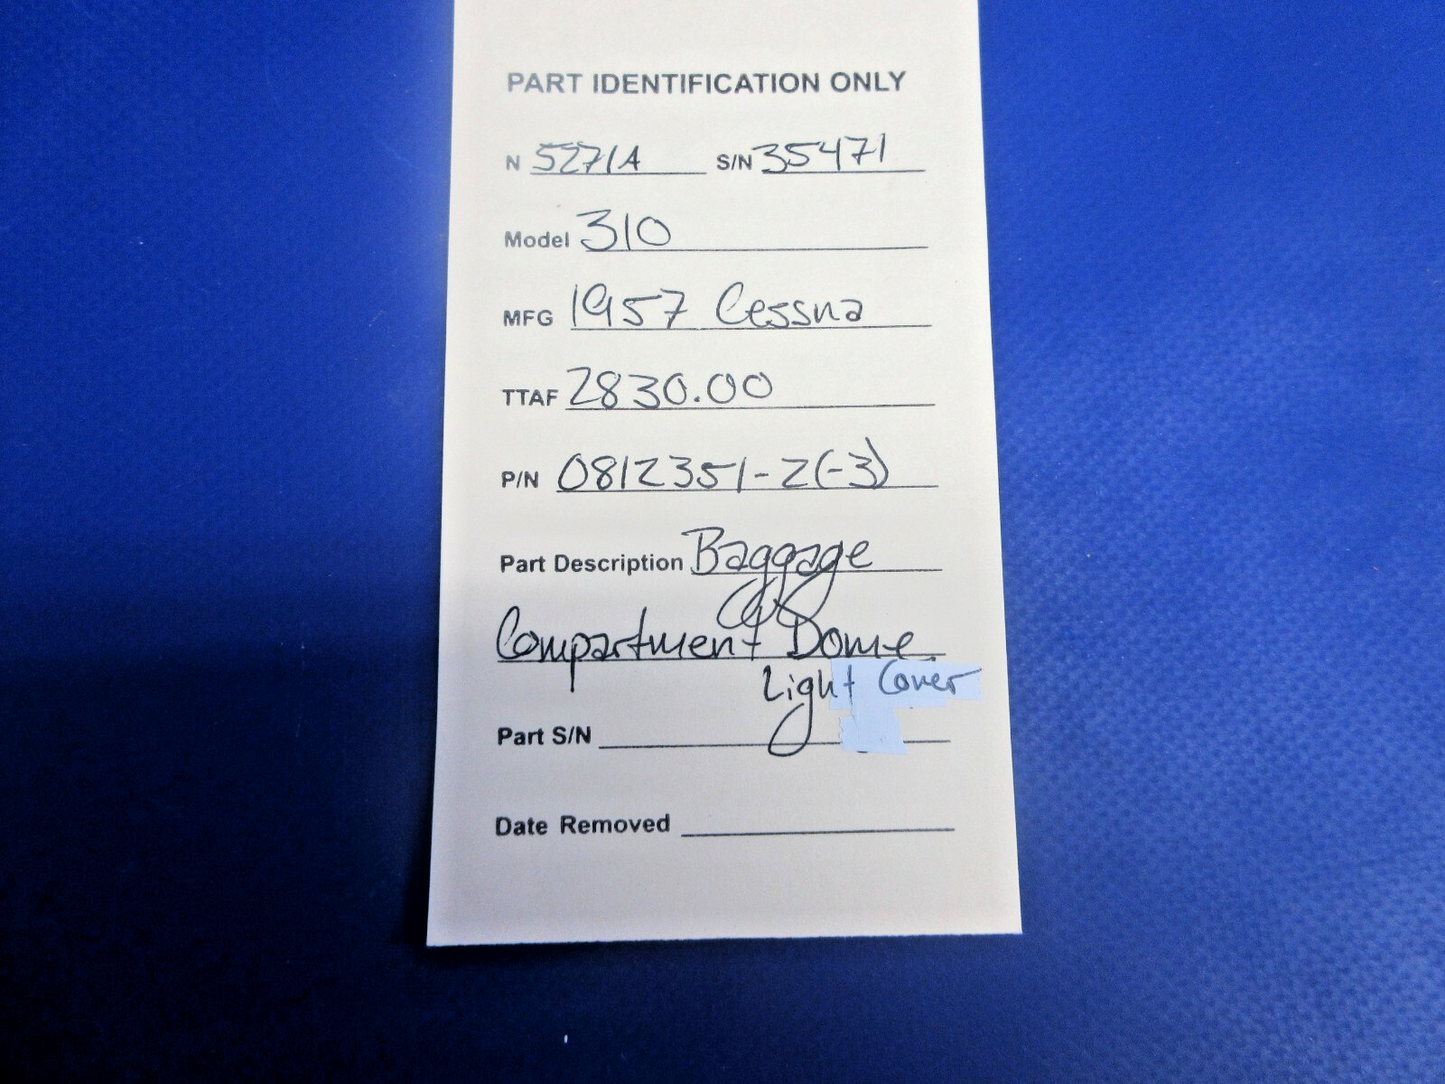 PART IDENTIFICATION ONLY
N 5271A S/N 35471
Model 310
MFG 1957 Cessna
TTAF 2830.00
P/N 0812351-2(-3)
Part Description Baggage
Compartment Dome
Light Cover
Part S/N
Date Removed